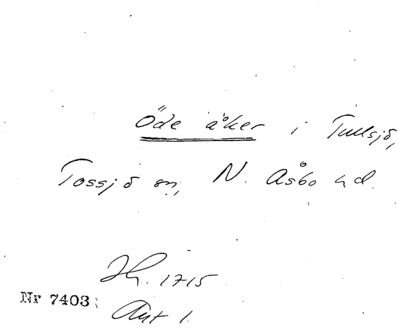 Öde åker i Tullsjö,
Tossjö sn, N. Åsbo hd.
Jh. 1715
Nr 7403:
Ant 1.